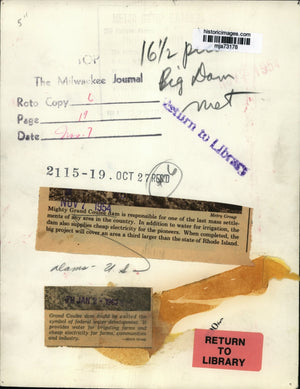 5"
historicimages.com
mja73178
TOP
16½
Big Dam
The Milwaukee Journal
Roto Copy 6
Page 19
Date
Return to Library
2115-19. OCT 27
NOV 7 1954
Mighty Grand Coulee dam is responsible for one of the last mass settlements of any area in the country. In addition to water for irrigation, the
dam also supplies cheap electricity for the pioneers. When completed, the
big project will cover an area a third larger than the state of Rhode Island.
dams - U.S.
Grand Coulee dam might be called the
symbol of federal water development. It
provides water for irrigating farms and
cheap electricity for farms, communities
and industry.
RETURN
TO
LIBRARY